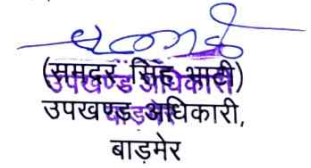 (समदर सिंह भाटी)
उपखण्ड अधिकारी
उपखण्ड अधिकारी,
बाड़मेर
बाड़मेर